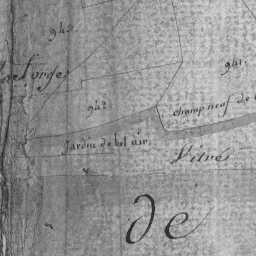 943.
941.
942.
champ neuf de
Jardin de bel air.
Vitré
de